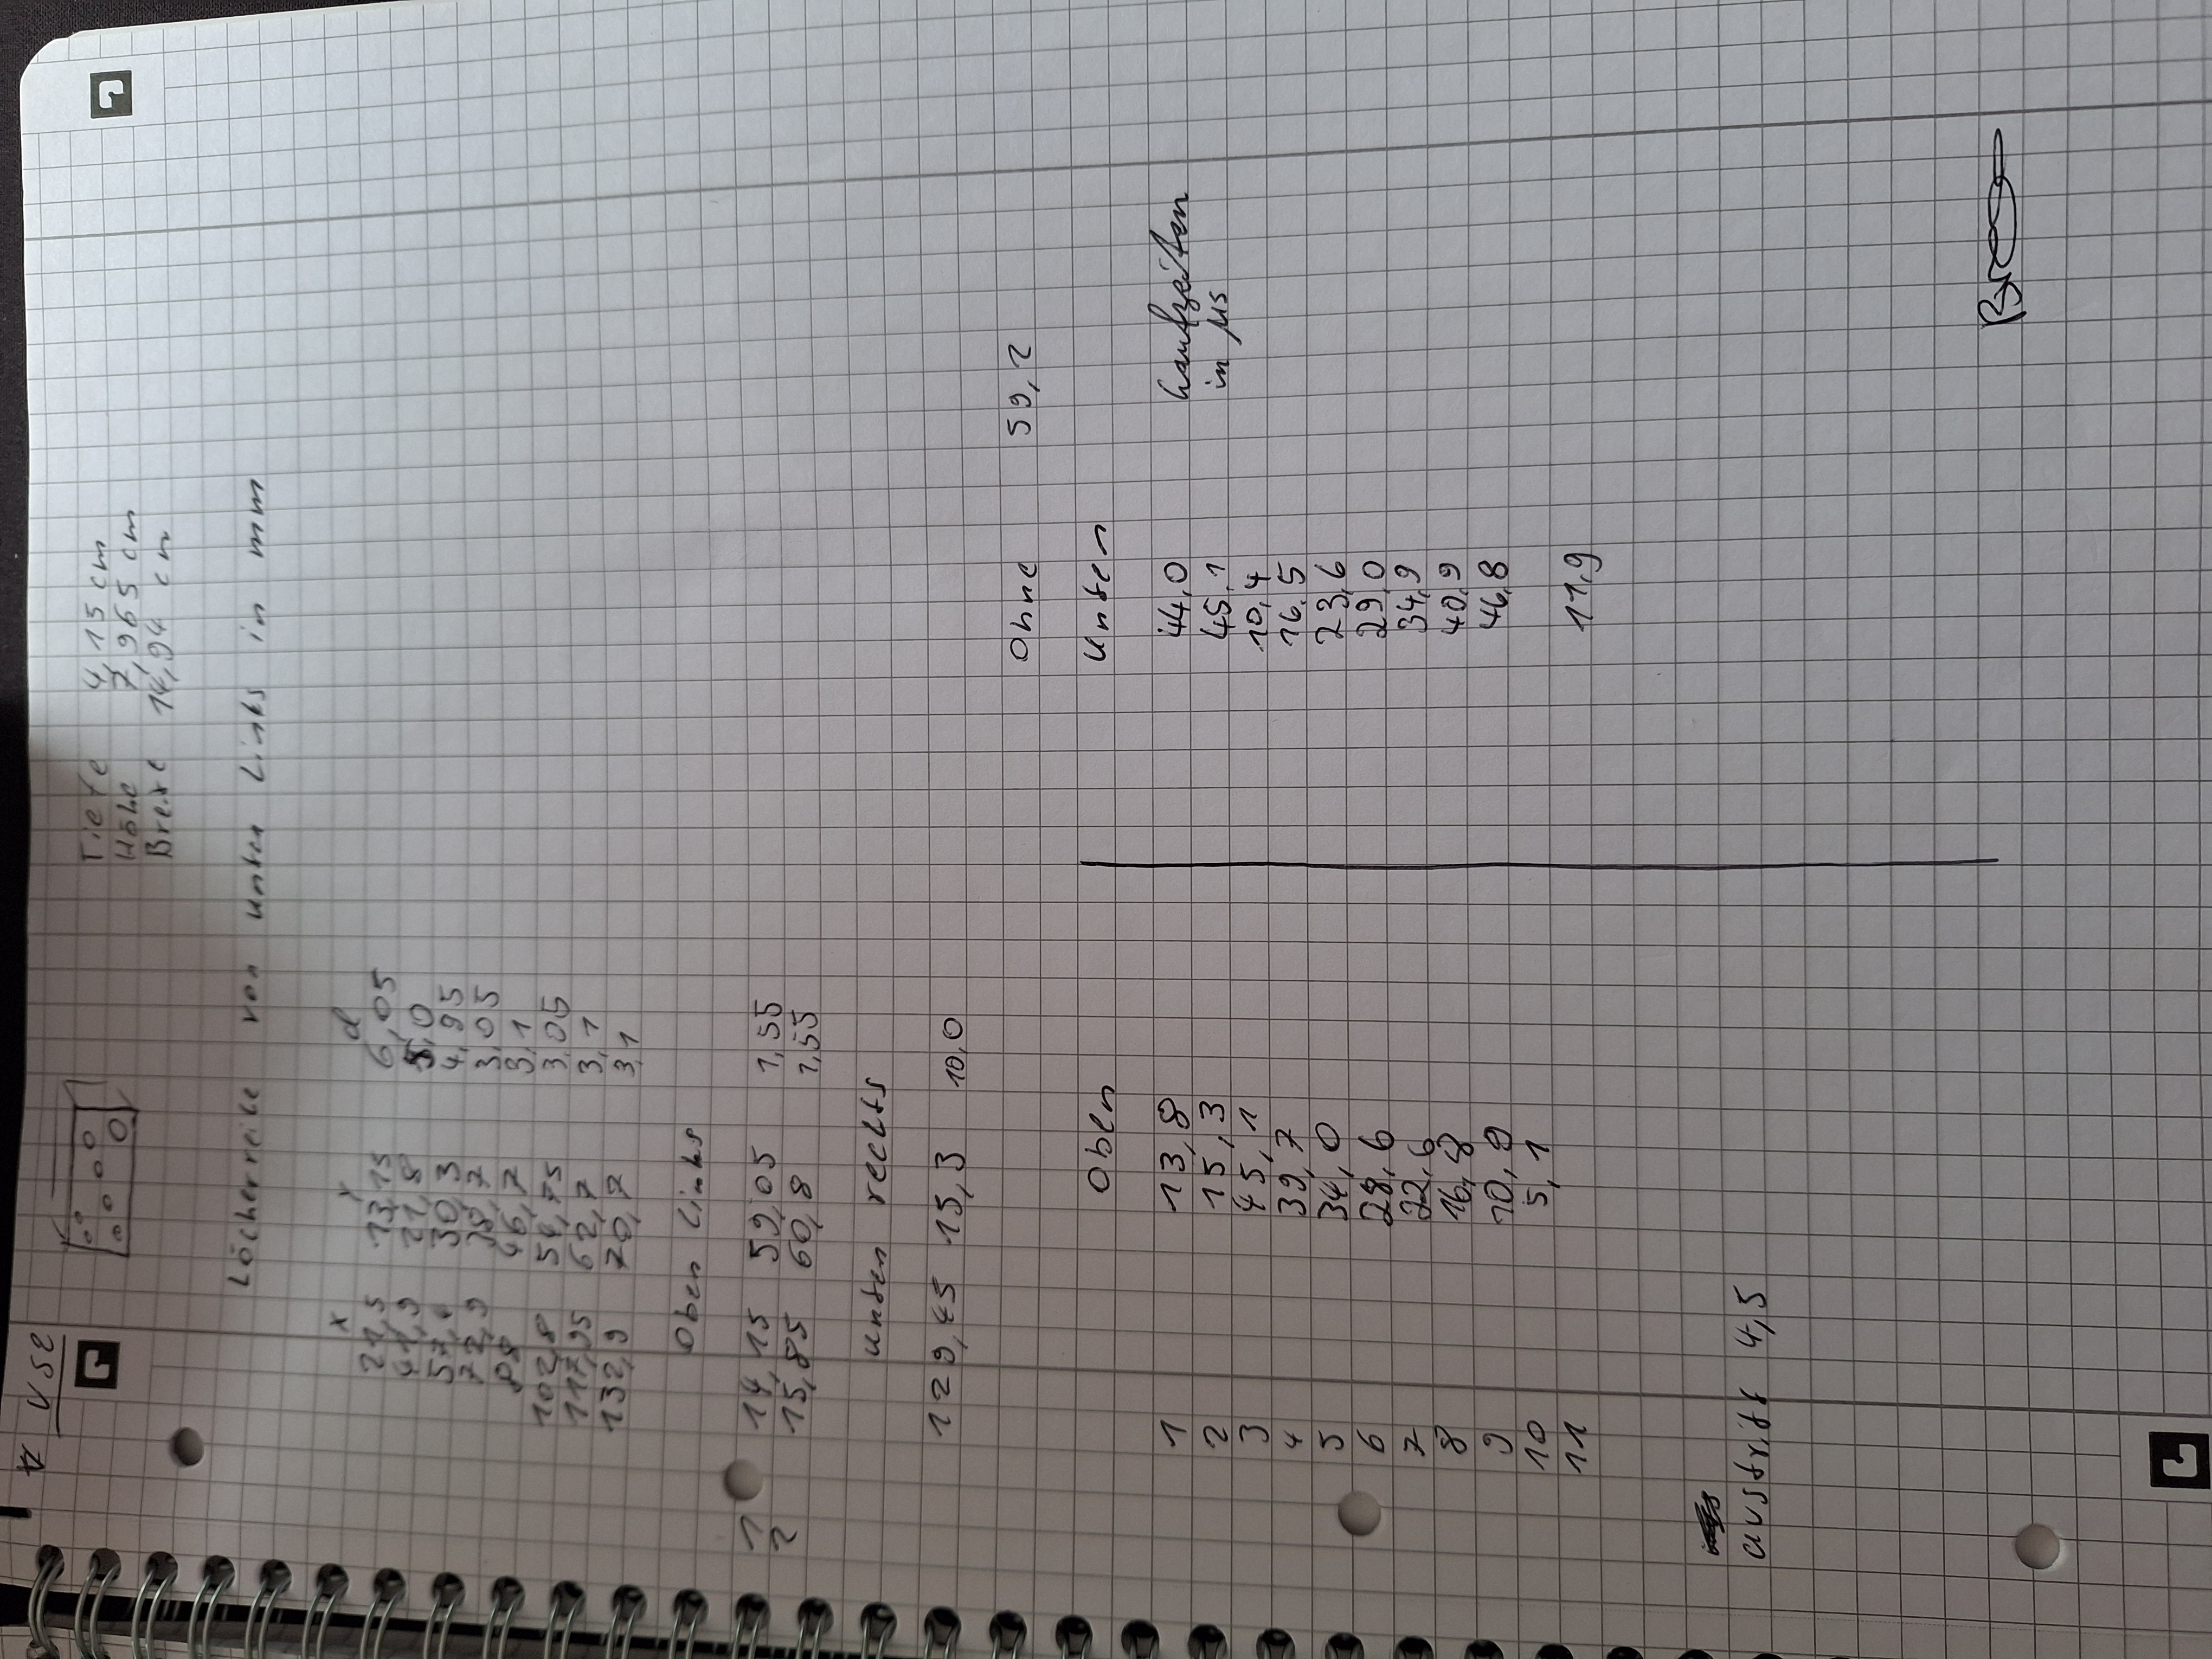 VS2
Tiefe 4,15 cm
Höhe 7,965 cm
Breite 14,94 cm
Löcherreihe von unten Links in mm
x y d
21,5 13,15 6,05
41,9 21,8 5,0
30,3 4,95
72,9 38,7 3,05
88 46,7 3,1
102,8 54,75 3,05
117,95 62,7 3,1
132,9 70,7 3,1
Oben Links
1 14,15 59,05 1,55
2 15,85 60,8 1,55
unten rechts
129,45 15,3 10,0
Ohne 59,2
Oben Unten
1 13,8 44,0 Laufzeiten
2 15,3 45,1 in µs
3 45,1 10,4
4 39,7 16,5
5 34,0 23,6
6 28,6 29,0
7 22,6 34,9
8 16,8 40,9
9 10,9 46,8
10 5,1
11 11,9
austritt 4,5